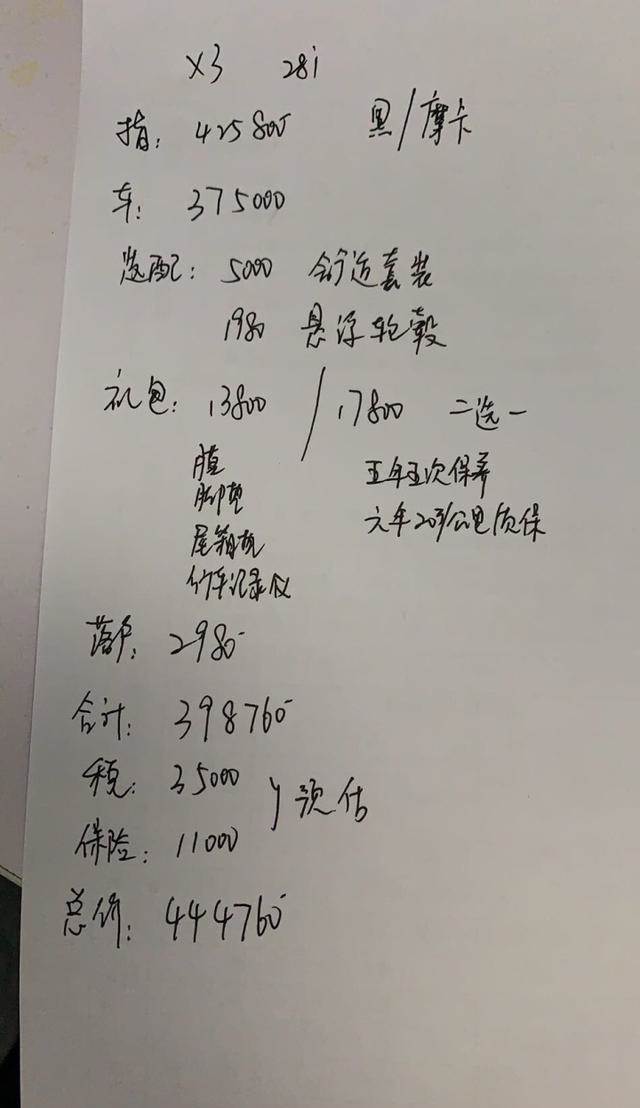 X3 28i
指: 425800 黑/摩卡
车: 375000
选配: 5000 舒适套装
1980 悬浮轮毂
礼包: 13800 / 17800 二选一
膜
脚垫
尾箱垫
行车记录仪
五年五次保养
六年20万公里质保
落户: 2980
合计: 398760
税: 35000 } 预估
保险: 11000
总价: 444760